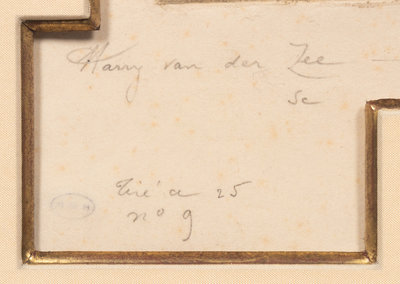 Harry van der Zee
Sc
Tiré a 25
nº 9